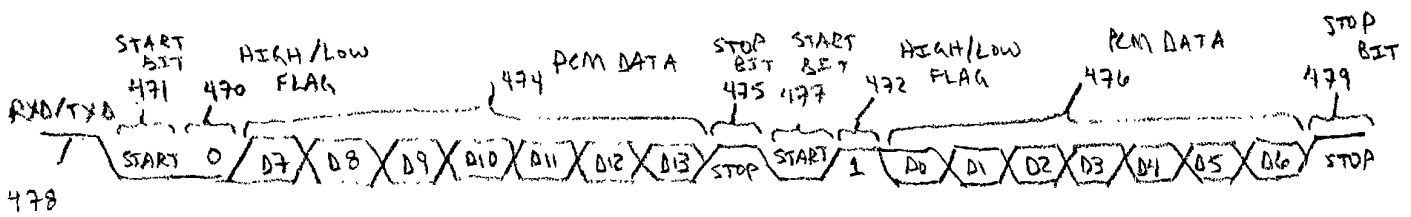 START BIT 471
470
HIGH/LOW FLAG
474
PCM DATA
STOP BIT 475
START BIT 477
472
HIGH/LOW FLAG
PCM DATA
476
STOP BIT 479
RXD/TXD
START 0 D7 D8 D9 D10 D11 D12 D13 STOP START 1 D0 D1 D2 D3 D4 D5 D6 STOP
478